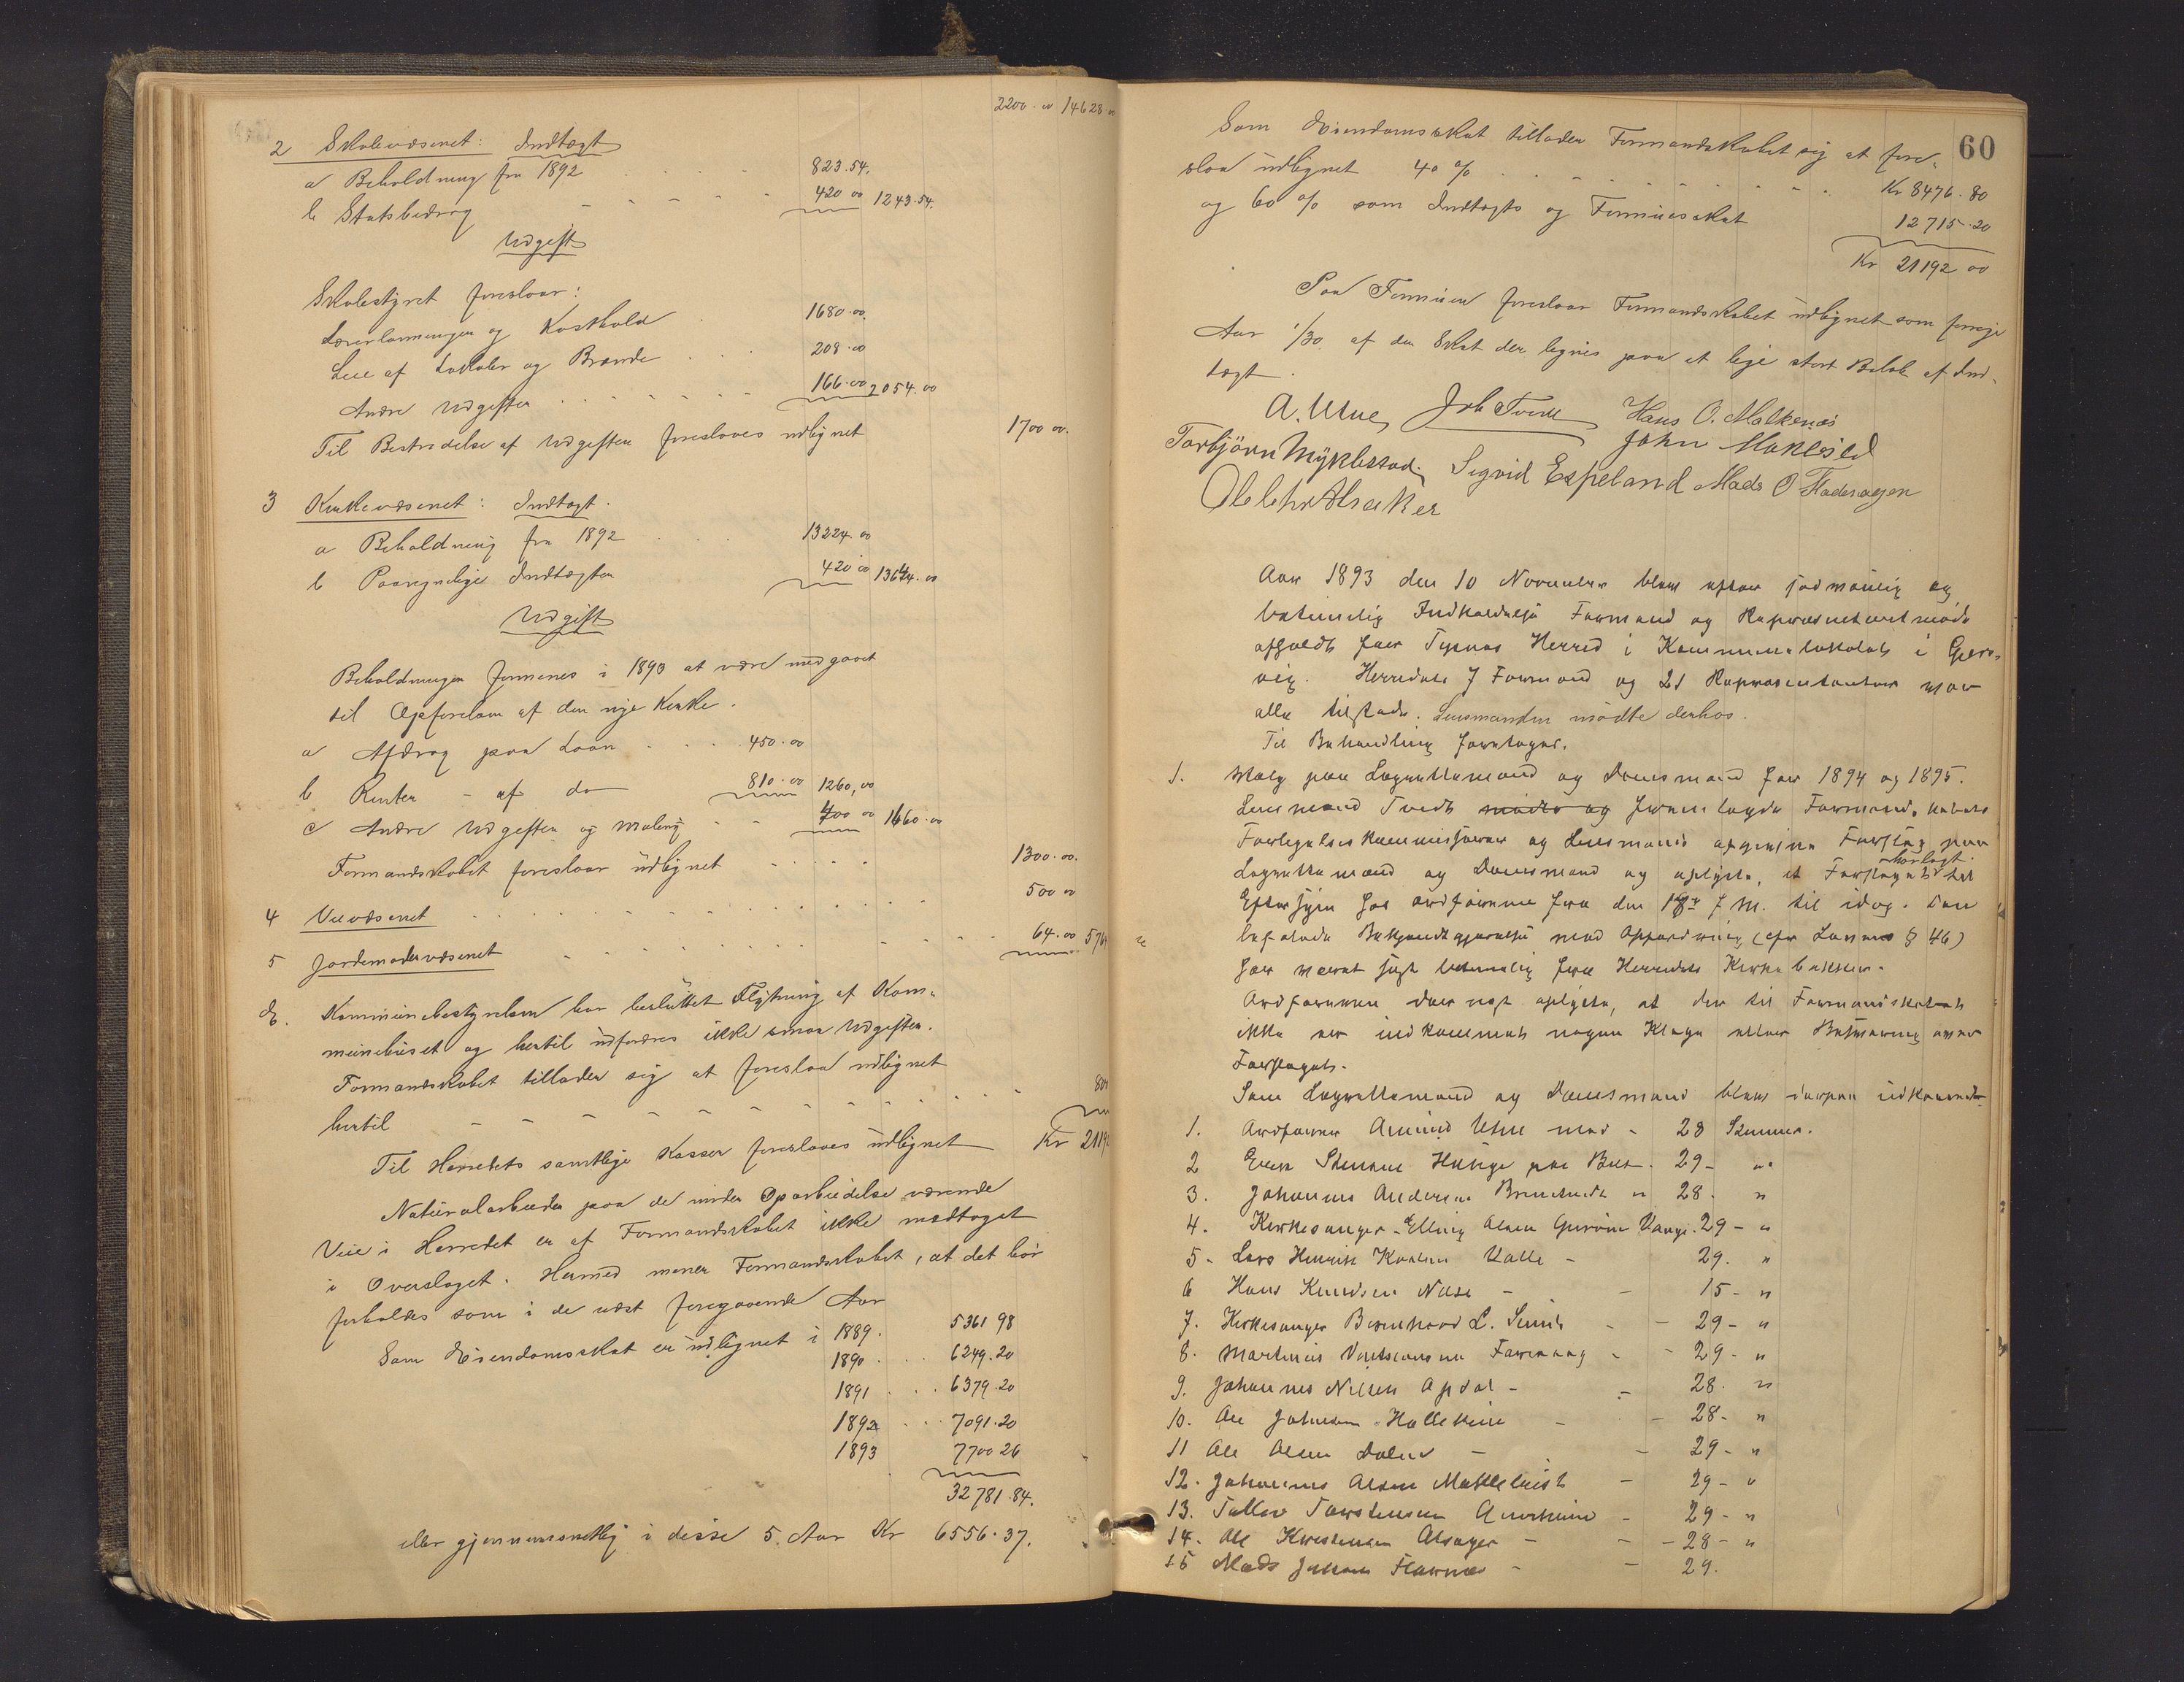 2200.00 14628.00
2 Skolevæsenet: Indtægt
a Beholdning fra 1892 . . . . 823.54.
b Statsbidrag - - - - - 420 00 1243.54.
Udgift
Skolestyret foreslaar:
Lærerlønninger og Kosthold . 1680.00.
Leie af Lokaler og Brænde . . . 208.00
Andre Udgifter . . . . . . . 166.00 2054.00
Til Bestridelse af Udgifter foreslaaes udlignet 1700 00.
3 Kirkevæsenet: Indtægt.
a Beholdning fra 1892 . . . 13224.00
b Paaregnelige Indtægter 420 00 13644.00
Udgift
Beholdningen formenes i 1893 at være medgaaet
til Opførelsen af den nye Kirke.
a Afdrag paa Laan . . . . 450.00
b Renter - af do 810.00 1260,00
c Andre Udgifter og maling - - 400 00 1660.00
Formandskabet foreslaar udlignet - . . . . 1300.00.
4 Veivæsenet . . . . . . . . . . . 500 00
5 Jordemodervæsenet - - . . . . . - - - 64.00 5764
d. Kommunebestyrelsen har besluttet Flytning af Kom-
munehuset og hertil udfordres ikke smaa Udgifter.
Formandskabet tillader sig at foreslaa udlignet
hertil - - - - - - - - - - - 800
Til Herredets samtlige Kasser foreslaaes udlignet Kr 2119
Naturalarbeider paa de under Oparbeidelse værende
Veie i Herredet er af Formandskabet ikke medtaget
i Overslaget. Hermed mener Formandskabet, at det bør
forholdes som i de næst foregaaende Aar
Som Eiendomsskat er udlignet i 1889. 5361 98
1890 . . . 6249.20
1891 . . . 6379.20
1892 . . . 7091.20
1893 7700 26
32781.84.
eller gjennemsnetlig i disse 5. Aar Kr 6556.37.
60
Som Eiendomsskat tillader Formandskabet sig at fore-
slaa udlignet 40 % . . - - - - - - - . Kr 8476.80
og 60 % som Indtægts og Formuesskat 12715.20
Kr 21192 00
Paa Formuen foreslaar Formandskabet udlignet som forrige
Aar 1/30 af den Skat der lignes paa et lige stort Beløb af Ind-
tægt.
A. Utne Joh Tvedt Hans O. Malkenæs
Torbjörn Myklestad. Sigvid Espeland John Maklesed
Mads O Fladeragen
Ole Chr Alsaker
Aar 1893 den 10 November blev efter lovmæssig og
betimelig Indkaldelse Formand og Repræsentantmøde
afholdt for Tysnes Herred i Kommunelokalet i Gjers-
vig. Herredets 7 Formænd og 21 Repræsentanter var
alle tilstede. Lensmanden mødte derhos.
Til Behandling foretoges.
1. Valg paa Lagrettemænd og Domsmænd for 1894 og 1895.
Lensmand Tvedt mødte og fremlagde Formandskabets
Forligelseskommissærer og Lensmands afgivne Forslag paa
Lagrettemænd og Domsmænd og oplyste, at Forslaget har ligt til
Eftersyn hos Ordføreren fra den 18de f M. til idag. Den
befalede Bekjendtgjørelse med Opfordring (cfr Lovens § 46)
har været sket betimelig fra Herredets Kirkebakker.
Ordføreren dernæst oplyste, at der til Formandskabet
ikke er indkommet nogen Klage eller Besværing over
Forslaget.
Som Lagrettemænd og Domsmænd blev derpaa udkaaret
1. Ordfører Amund Utne med - 28 Stemmer.
2 29- "
3. Johannes Andersen " 28. "
4. Kirkesanger Elling Olsen Vange. 29- "
5- Lars Henrik Valle - 29. "
6 Hans Knudsen - - 15- "
7. Kirkesanger L. - - 29- "
8. Martinus - - 29- "
9. Johannes Nilsen Opdal - - 28. "
10. Ole Johnsen - - 28- "
11 Ole Olsen Dalen - - 29- "
12. Johannes Olsen - 29- "
13. Tollev Torstensen - 29- "
14. Ole - - 28- "
15 Mads - - 29.